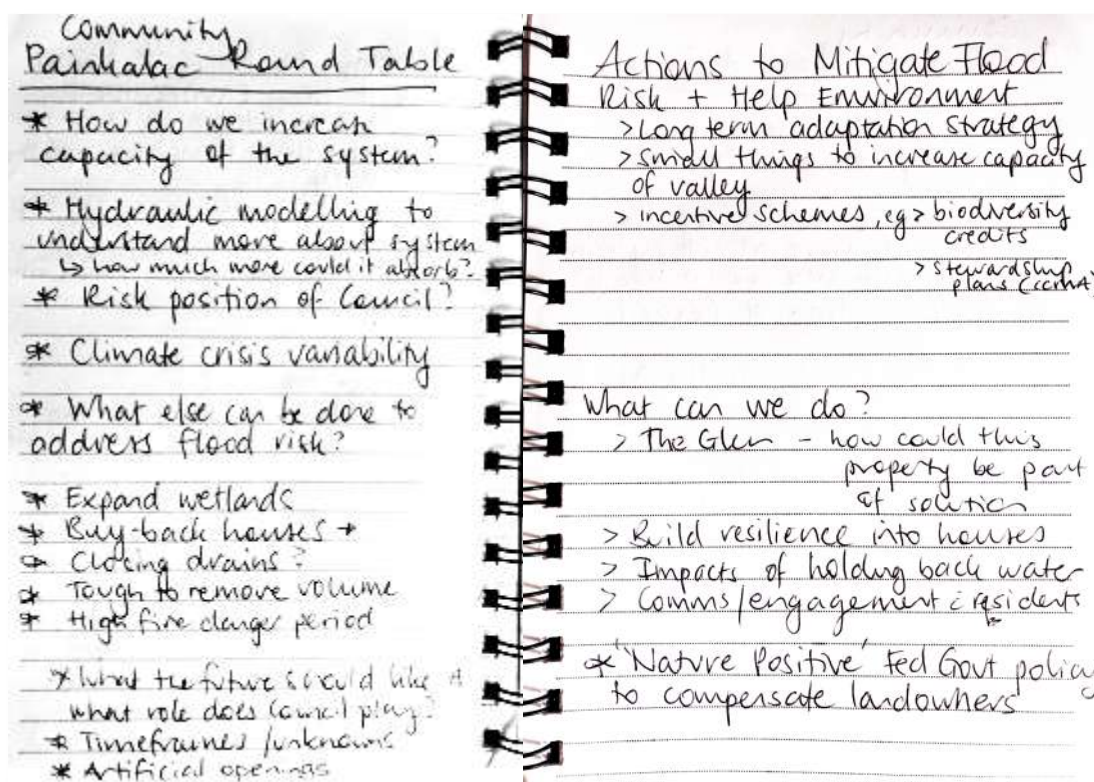 Community
Painkalac Round Table
* How do we increase
capacity of the system?
* Hydraulic modelling to
understand more about system
↳ how much more could it absorb?
* Risk position of Council?
* Climate crisis variability
* What else can be done to
address flood risk?
* Expand wetlands
* Buy-back houses *
* Closing drains?
* Tough to remove volume
* High fire danger period
* What the future should like
what role does Council play?
* Timeframes / unknowns
* Artificial openings
Actions to Mitigate Flood
Risk + Help Environment
> Long term adaptation strategy
> Small things to increase capacity
of valley
> incentive schemes, eg > biodiversity
credits
> Stewardship
plans (CCMA)
What can we do?
> The Glen - how could this
property be part
of solution
> Build resilience into houses
> Impacts of holding back water
> Comms/engagement c̄ residents
* 'Nature Positive' Fed Govt policy
to compensate landowners